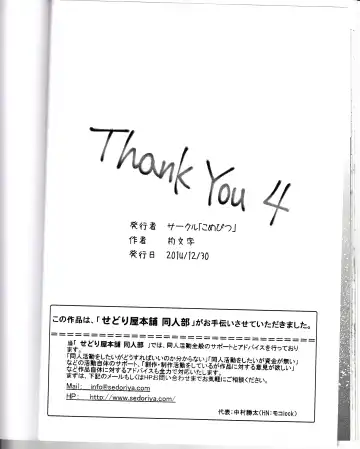 Thank You 4
発行者 サークル「こめびつ」
作者
発行日 2014/12/30
この作品は、「せどり屋本舗 同人部」がお手伝いさせていただきました。
当「せどり屋本舗 同人部」では、同人活動全般のサポートとアドバイスを行っております。
「同人活動をしたいがどうすればいいのか分からない」「同人活動をしたいが資金が無い」
などの活動自体のサポート、「創作・制作活動をしているが作品に対する意見が欲しい」
など作品自体に対するアドバイスも全力で対応いたします。
まずは、下記のメールもしくはHPお問い合わせまでお気軽にご相談ください。
Mail: info@sedoriya.com
HP: http://www.sedoriya.com/
代表:中村勝太(HN:モコlock)